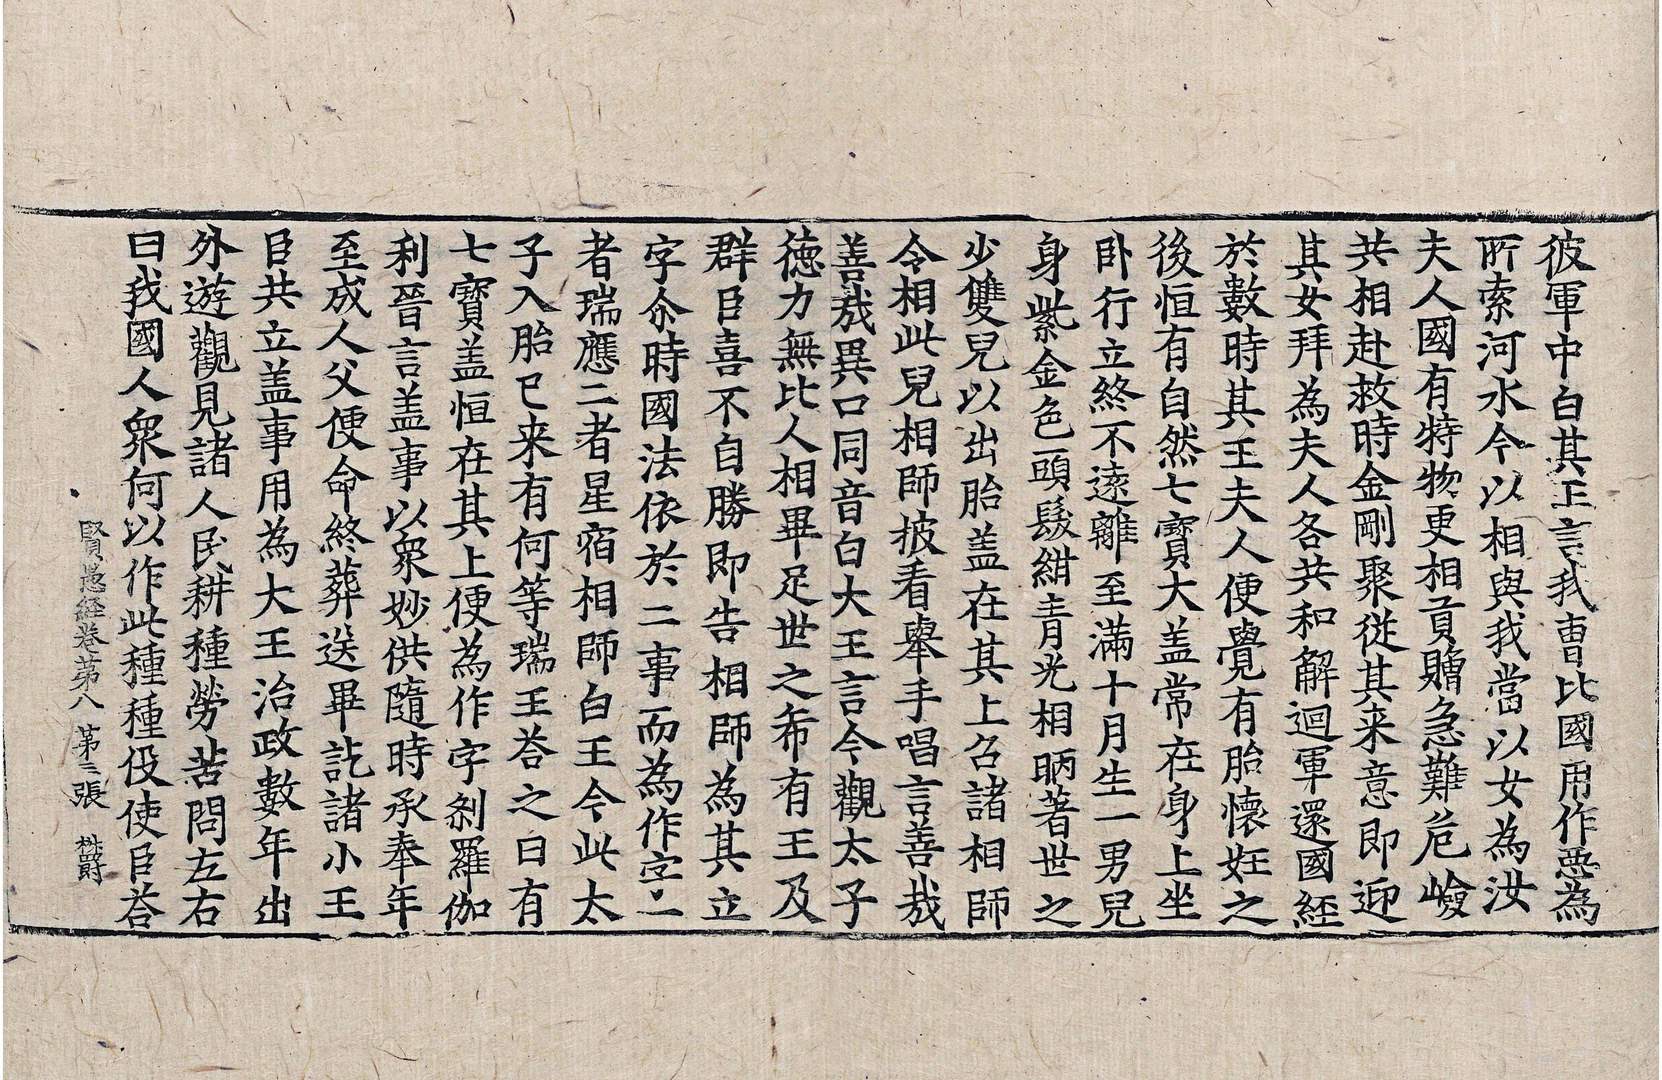 彼軍中白其王言我曹比國用作惡為
所索河水今以相與我當以女為汝
夫人國有特物更相貢贈急難危嶮
共相赴救時金剛聚從其来意即迎
其女拜為夫人各共和解迴軍還國經
於數時其王夫人便覺有胎懷妊之
後恒有自然七寶大盖常在身上坐
卧行立終不遠離至滿十月生一男兒
身紫金色頭髮紺青光相昞著世之
少雙兒以出胎盖在其上召諸相師
令相此兒相師披看舉手唱言善哉
善哉異口同音白大王言今觀太子
德力無比人相畢足世之希有王及
群臣喜不自勝即告相師為其立
字尒時國法依於二事而為作字一
者瑞應二者星宿相師白王今此太
子入胎已来有何等瑞王荅之曰有
七寶盖恒在其上便為作字刹羅伽
利晉言盖事以眾妙供隨時承奉年
至成人父便命終葬送畢訖諸小王
臣共立盖事用為大王治政數年出
外遊觀見諸人民耕種勞苦問左右
曰我國人眾何以作此種種役使臣荅
賢愚経卷第八 第二張